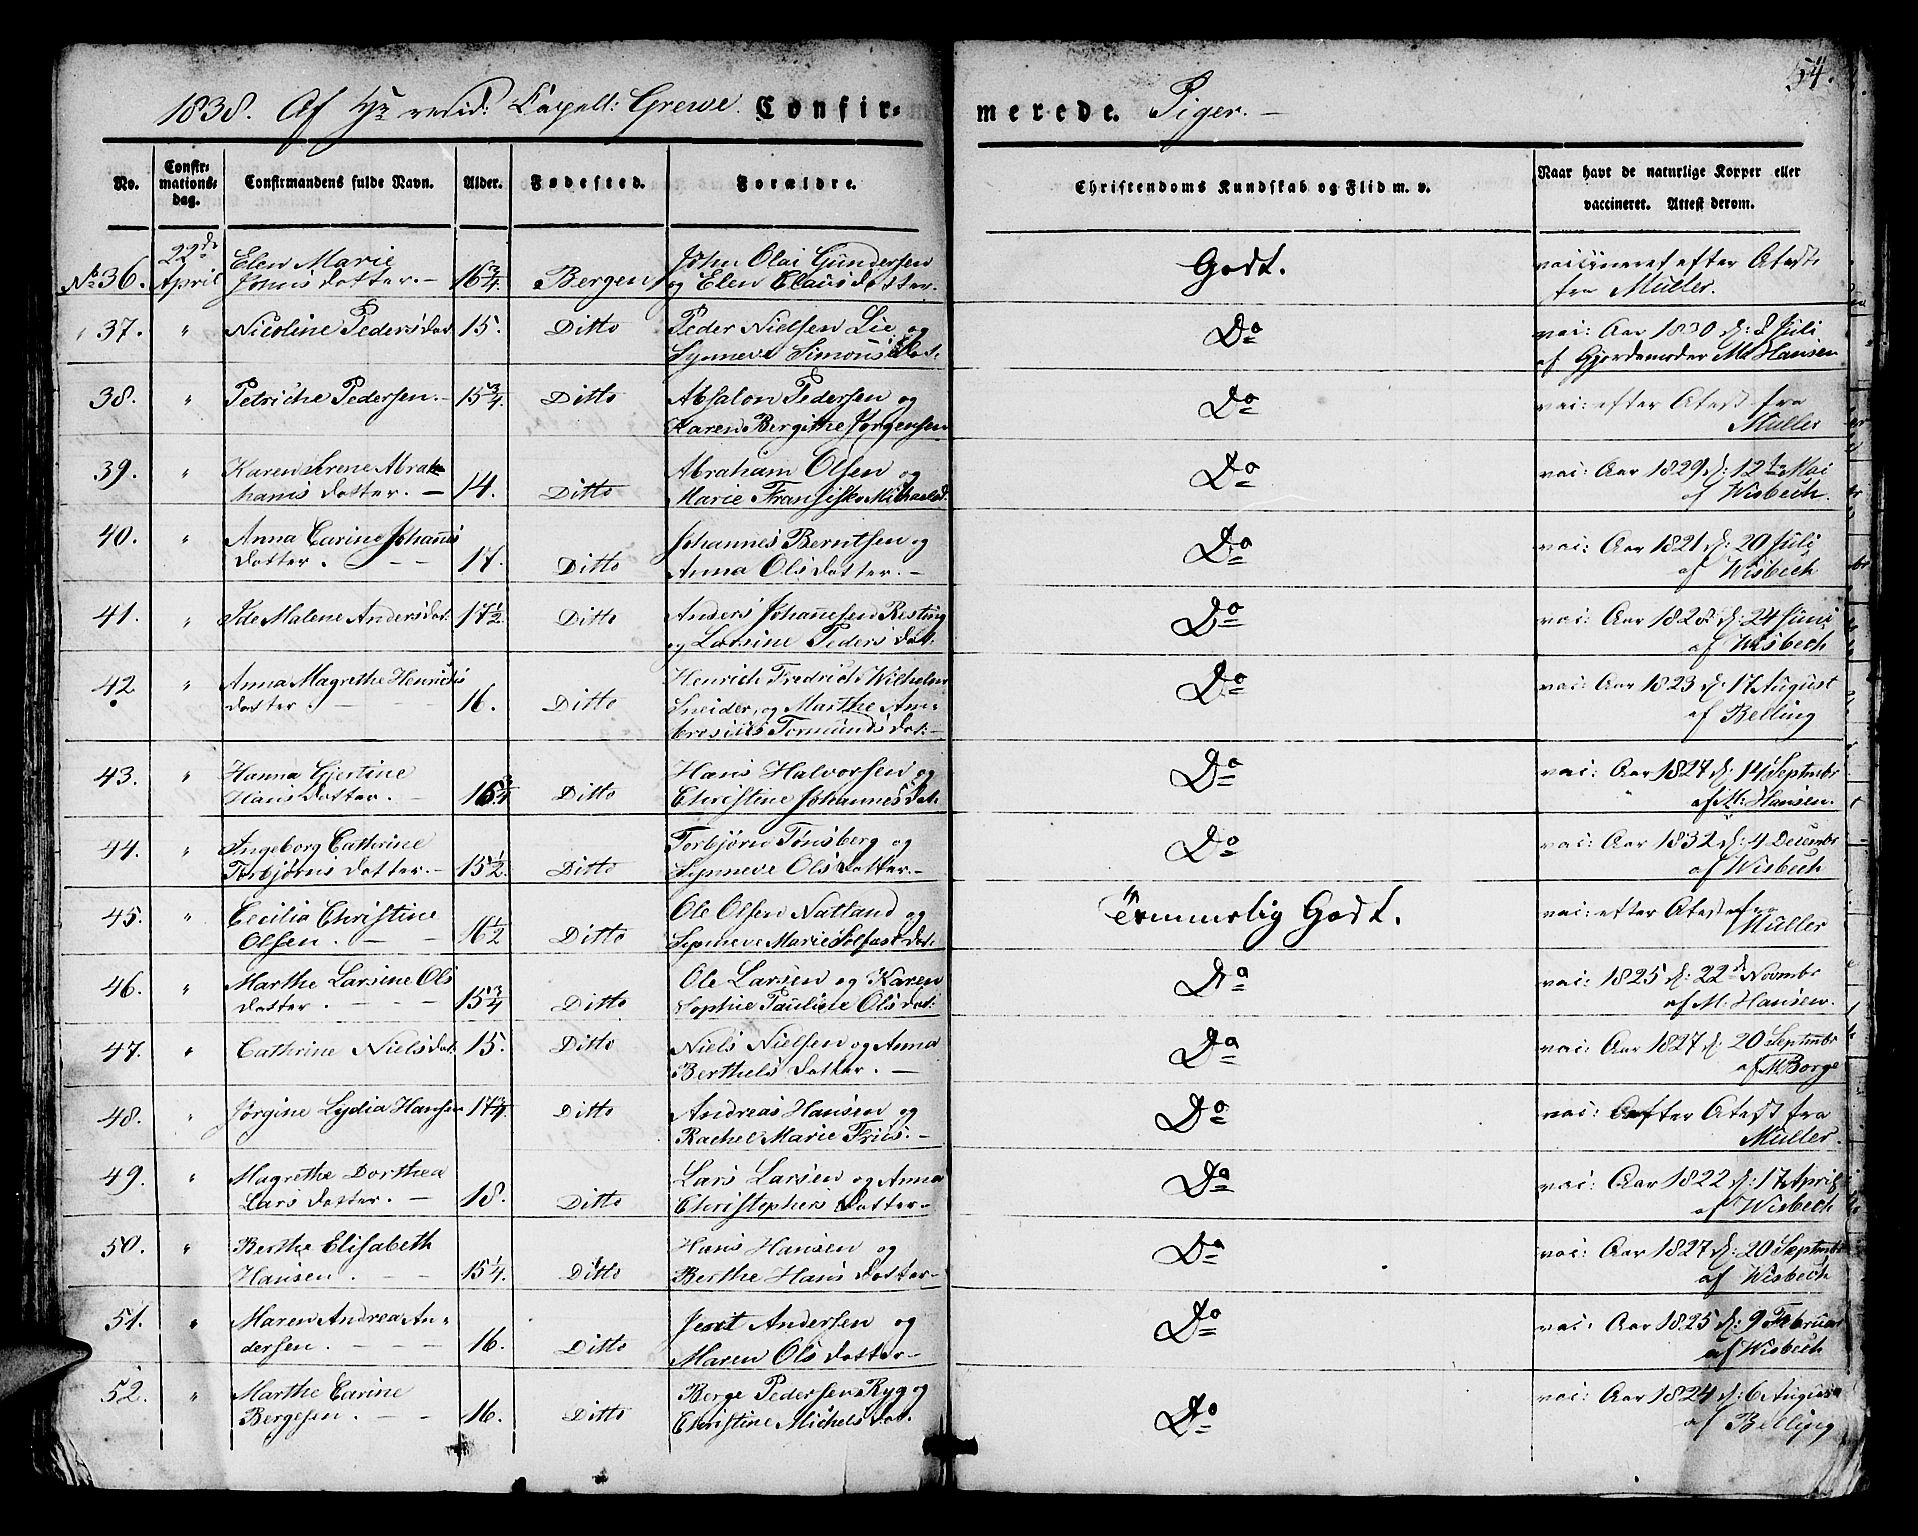 54.
1838. Af Hr resid: Capell: Grewe. Confirmerede Piger.
No. Confirmationsdag. Confirmandens fulde Navn. Alder. Fødested. Forældre. Christendoms Kundskab og Flid m. v. Naar havt de naturlige Kopper eller vaccineret. Attest derom.
22de
No 36. April Elen Marie Johns datter. 16 3/4. Bergen John Olai Gundersen og Elen Claus datter. Godt. vaccineret efter Atest fra Müller.
37. " Nicoline Peders dat. 15. Ditto Peder Nielsen Lie og Synneve Simons Dat. Do vac: Aar 1830 d: 8 Juli af Gjordemoder Md Hansen
38. " Petriche Pedersen. 15 3/4. Ditto Absalon Pedersen og Karen Bergithe Jørgensen Do vac: efter Atest fra Müller
39. " Karen Serene Abrahams datter. 14. Ditto Abraham Olsen og Marie Fransiska Michaelsd. Do vac: Aar 1829 d: 12te Mai af Wisbech.
40. " Anna Carine Johannes datter. 17. Ditto Johannes Berntsen og Anna Ols datter. Do vac: Aar 1821 d: 20 Juli af Wisbech
41. " Ide Malene Anders dat: 17 1/2. Ditto Anders Johannesen Resting og Larsine Peders dat: Do vac: Aar 1828 d: 24 Juni af Wisbech
42 " Anna Magrethe Henrichs datter. 16. Ditto Henrich Fredrich Wilhelm Sneider, og Marthe Ambrosius Tormunds dat: Do vac: Aar 1823 d: 17 August af Belling
43. " Hanna Gjertine Hans datter. 16 3/4 Ditto Hans Halvorsen og Christine Johannes dat. Do vac: Aar 1827 d: 14 Septmbr af M: Hansen.
44. " Ingeborg Cathrine Torbjørns datter. 15 1/2. Ditto Torbjørn Tønsberg og Synneve Ols datter. Do vac: Aar 1832 d: 4 Decembr af Wisbech
45. " Cecilia Christine Olsen. 16 1/2 Ditto Ole Olsen Natland og Synneve Marie Solfast dat: Temmelig Godt. vac: efter Atest fra Müller
46. " Marthe Larsine Ols datter. 15 3/4 Ditto Ole Larsen og Karen Sophie Pauline Ols dat: Do vac: 1825 d: 22d Novmbr af M: Hansen.
47. " Cathrine Niels dat: 15. Ditto Niels Nielsen og Anna Berthels datter. Do vac: Aar 1827 d: 20 Septmbr af M Borge
48. " Jørgine Lydia Hansen 17 3/4 Ditto Andreas Hansen og Rachel Marie Friis. Do vac: efter Atest fra Müller.
49. " Magrethe Dorthea Lars datter. 18. Ditto Lars Larsen og Anna Christophers datter Do vac: Aar 1822 d: 17 April af Wisbech
50. " Berthe Elisabeth Hansen. 15 1/4. Ditto Hans Hansen og Berthe Hans datter Do vac: Aar 1827 d: 20 Septmbr af Wisbech
51. " Maren Andrea Andersen. 16. Ditto Andersen og Maren Ols datter Do vac: Aar 1825 d: 9 Februar af Wisbech
52. " Marthe Carine Bergesen. 16. Ditto Berge Pedersen Ryg og Christine Michels dat. Do vac: Aar 1824 d: 6 August af Belling